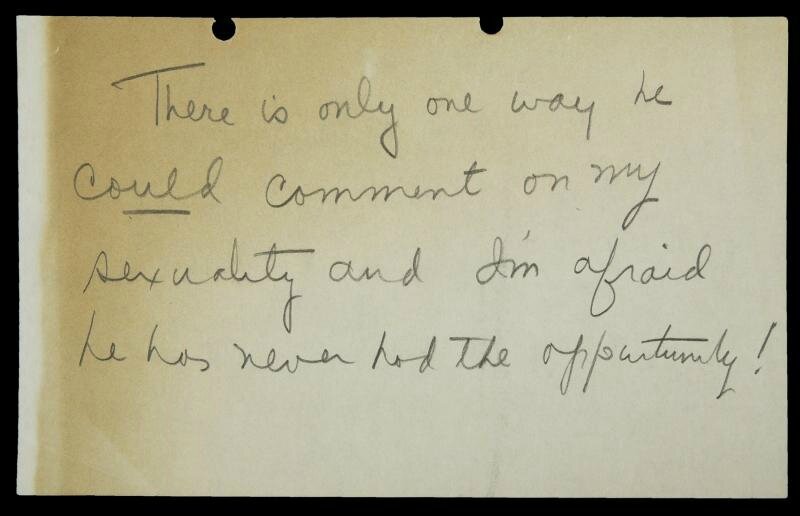 There is only one way he
could comment on my
sexuality and I'm afraid
he has never had the opportunity!